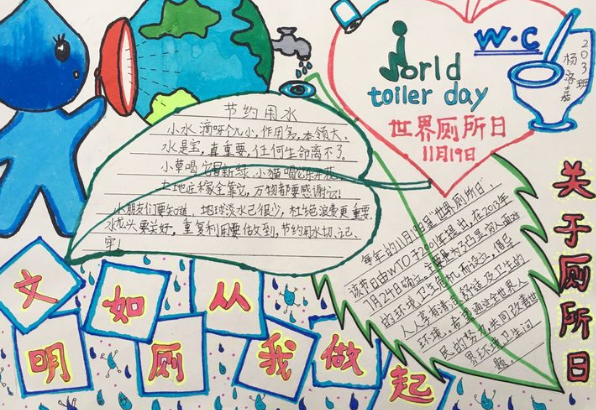 节约用水
小水滴呀个儿小,作用多,本领大,
水是宝,真重要,任何生命离不了。
大地庄稼全靠它,万物都要感谢它!
小朋友们要知道,地球淡水已很少,杜绝浪费更重要,
水龙头要关好,重复利用要做到,节约用水切记
牢!
world
toiler day
世界厕所日
11月19日
W·C
203班
杨
嘉
关于厕所日
每年的11月19日是“世界厕所日”,
该节日由WTO于2001年提出,在2013年
7月24日确立,
的环境卫生危机而设立,倡导
人人享有清洁、舒适及卫生的
环境,希望通过全世界人
民的努力,共同改善世
界环境卫生问
题。
文明如厕从我做起